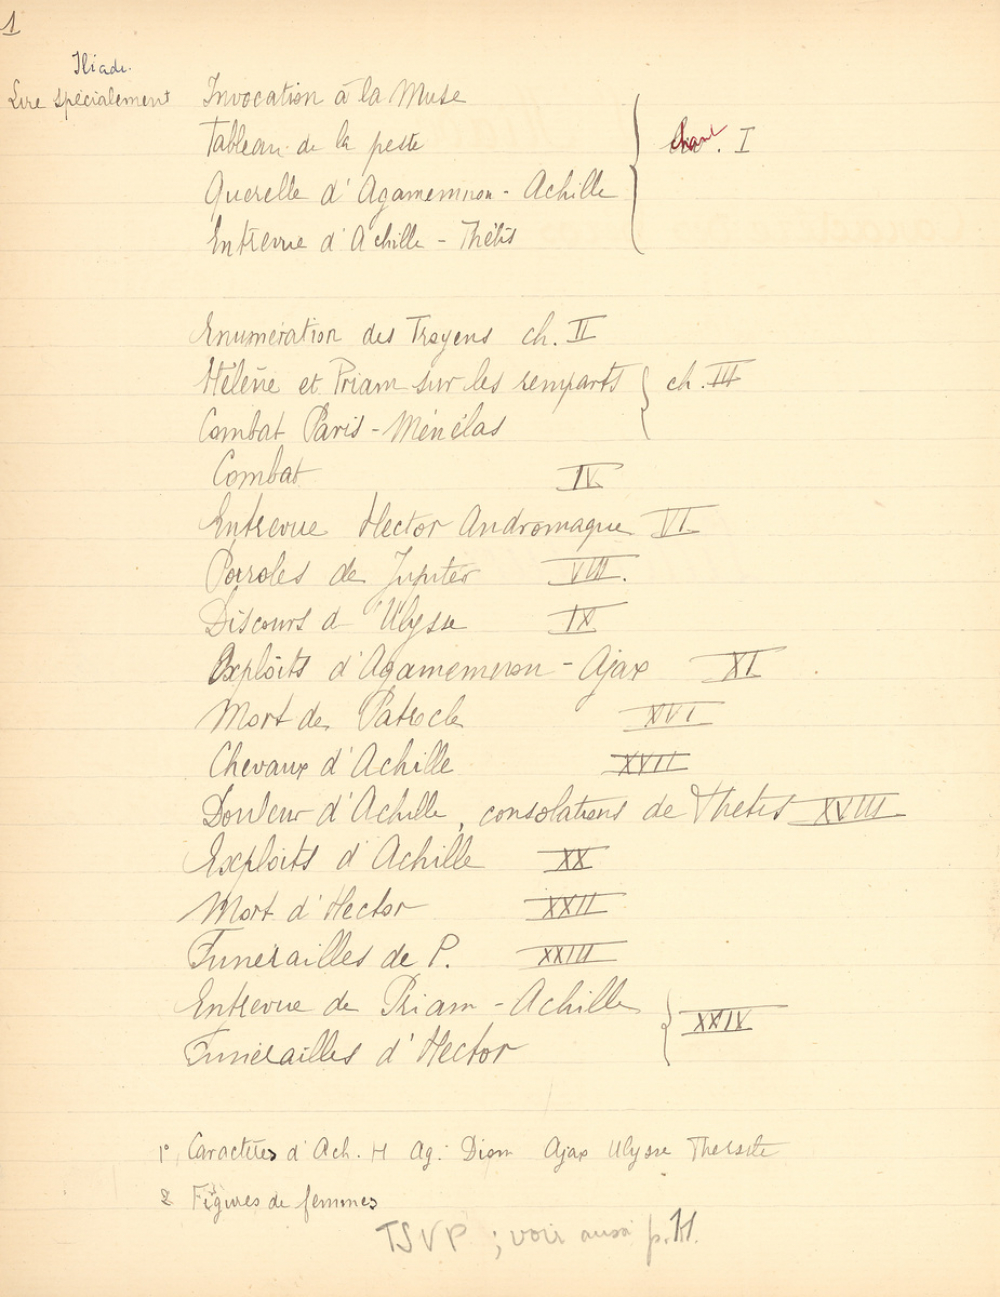 1
Iliade.
Lire spécialement Invocation à la Muse
Tableau de la peste
Chant. I
Querelle d'Agamemnon - Achille
Entrevue d'Achille - Thétis
Enumération des Troyens ch. II
Hélène et Priam sur les remparts ch. III
Combat Paris - Ménélas
Combat IV
Entrevue Hector Andromaque VI
Paroles de Jupiter VIII.
Discours d'Ulysse IX
Exploits d'Agamemnon - Ajax XI
Mort de Patrocle XVI
Chevaux d'Achille XVII
Douleur d'Achille, consolations de Thétis XVIII
Exploits d'Achille XX
Mort d'Hector XXII
Funérailles de P. XXIII
Entrevue de Priam - Achille
XXIV
Funérailles d'Hector
1° Caractères d'Ach. H Ag. Diom Ajax Ulysse Thersite
2 Figures de femmes
TSVP ; voir aussi p.